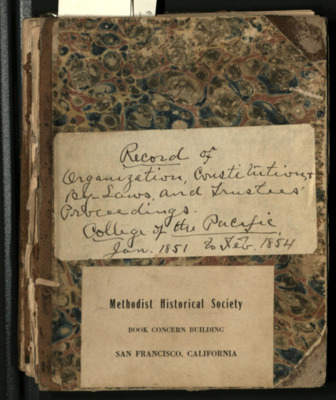 Record of
Organization, Constitution, &
By-Laws, and Trustees'
Proceedings.
College of the Pacific
Jan. 1851 to Feb. 1854
Methodist Historical Society
BOOK CONCERN BUILDING
SAN FRANCISCO, CALIFORNIA